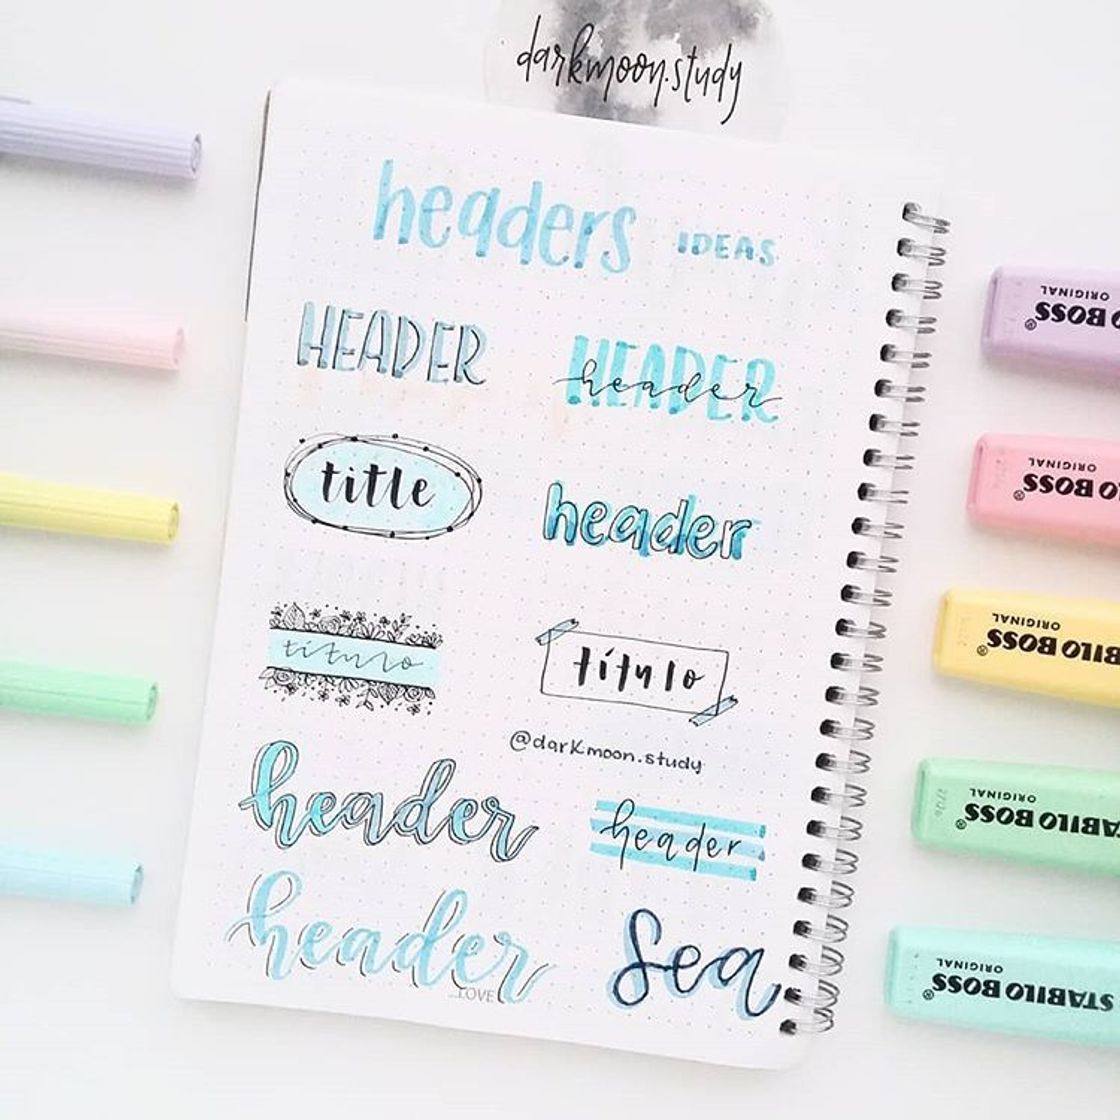 darkmoon.study
headers IDEAS
HEADER
HEADER
header
title
header
título
título
@darkmoon.study
header
header
header
sea
LOVE
STABILO BOSS
ORIGINAL
STABILO BOSS
ORIGINAL
STABILO BOSS
ORIGINAL
STABILO BOSS
ORIGINAL
STABILO BOSS
ORIGINAL